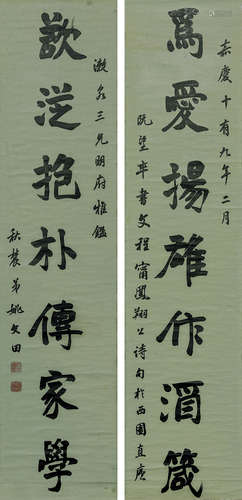 嘉慶十有九年二月
爲愛揚雄作酒箴
既望率書文程甯鳳翔公詩句於西園直廬
漱泉三兄明府雅鑑
欲從抱朴傳家學
秋農弟姚文田